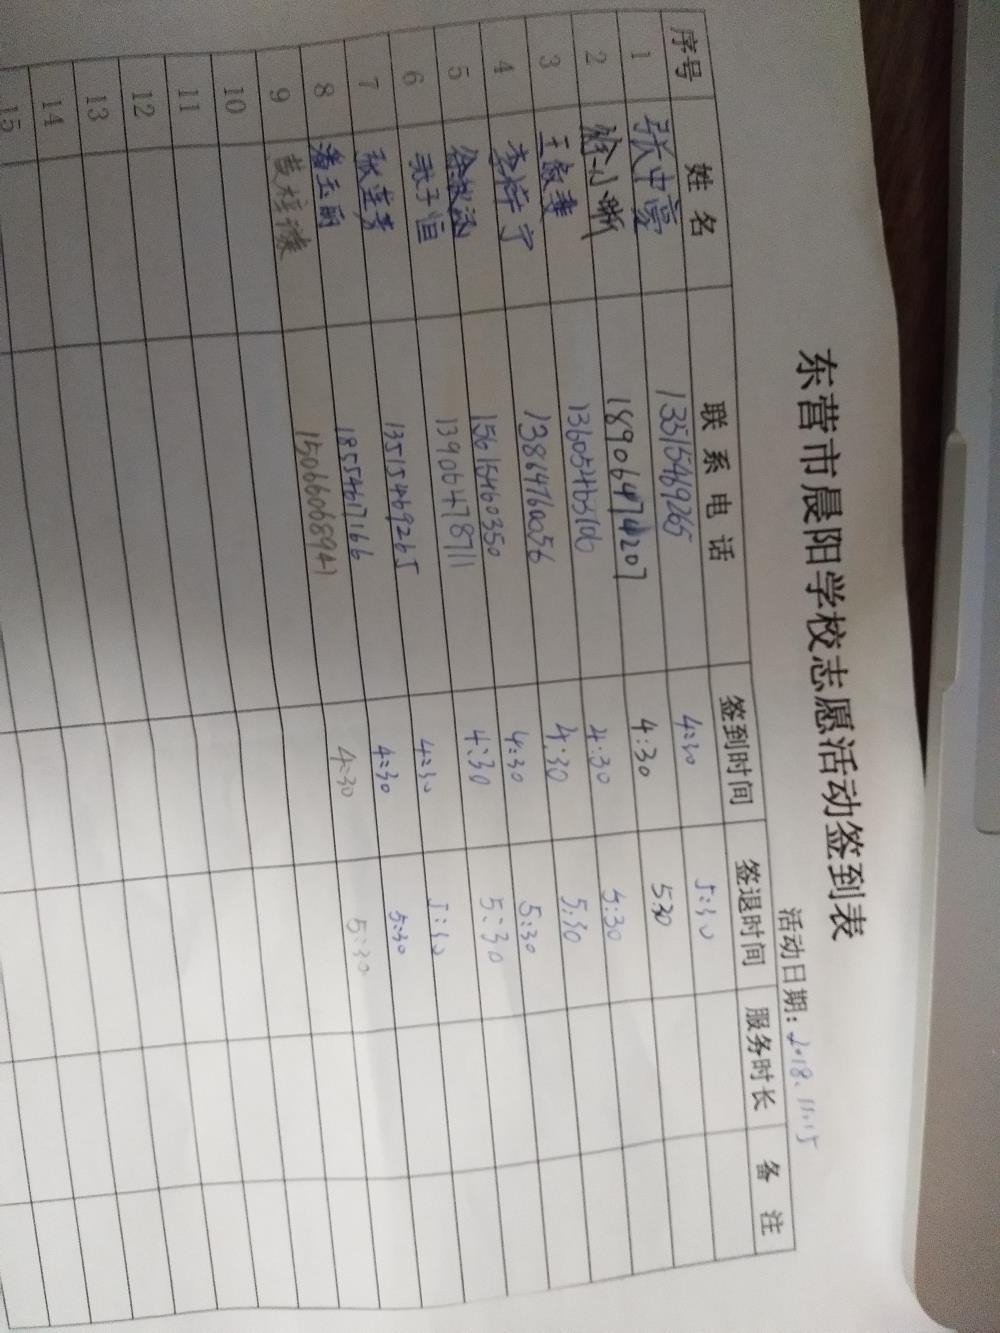 东营市晨阳学校志愿活动签到表
活动日期：2018.11.15
序号 姓名 联系电话 签到时间 签退时间 服务时长 备注
1 13515469265 4:30 5:30
2 徐小晰 18906474207 4:30 5:30
3 王 13605463106 4:30 5:30
4 李梓宁 13864760056 4:30 5:30
5 15615460350 4:30 5:30
6 子恒 13906478711 4:30 5:30
7 张莲芳 13515469265 4:30 5:30
8 潘玉丽 18554617166 4:30 5:30
9 黄梓 15066068941 4:30 5:30
10
11
12
13
14
15